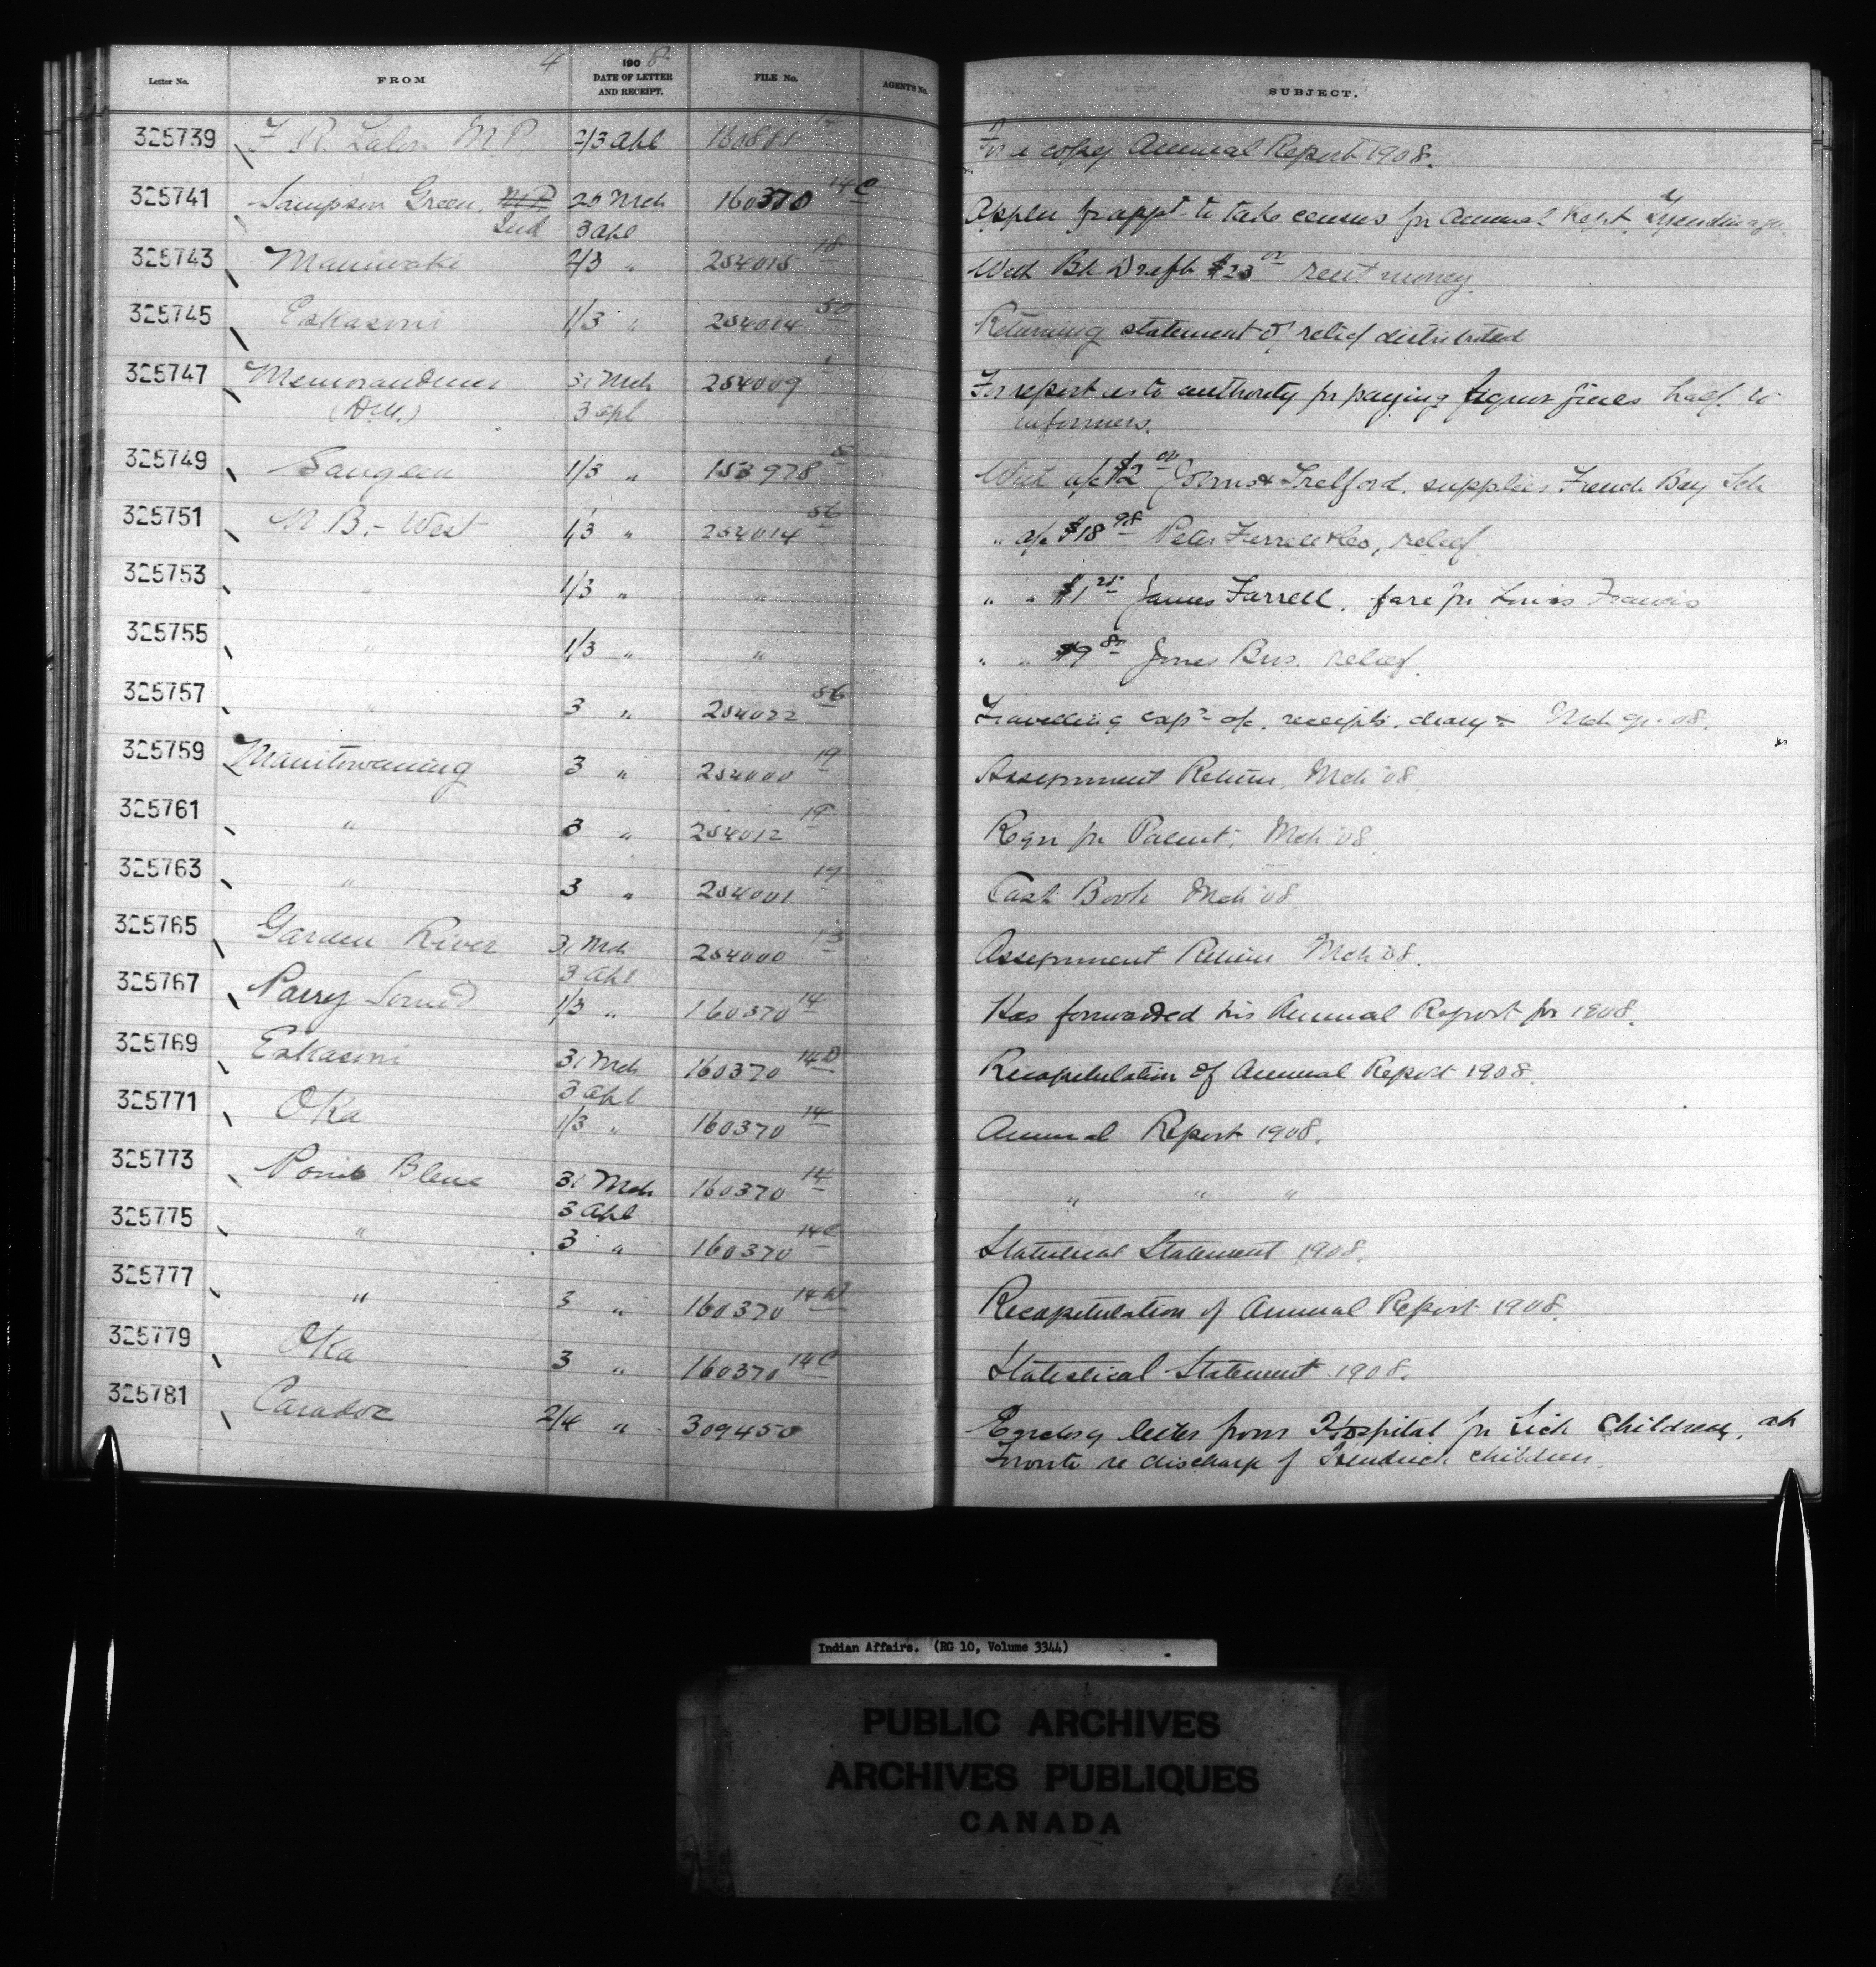 4
Letter No. FROM 1908 DATE OF LETTER AND RECEIPT. FILE No. AGENT'S No. SUBJECT.
325739 F R. Lalor M.P. 2/3 Apl 160885 14 For a copy Annual Report 1908.
325741 Sampson Green, M.P. 28 Mch 160370 14C Applen for appt to take census for Annual Rept. Tyendinaga.
Ind 3 Apl
325743 Maniwaki 2/3 " 254015 18 With Bk Draft $23 00 rent money.
325745 Eskasoni 1/3 " 254014 50 Returning statement of relief distributed
325747 Memorandum 31 Mch 254009 1 For report as to authority for paying liquor fines half to
(D.M.) 3 Apl informers.
325749 Saugeen 1/3 " 153978 5 With a/c $2 00 Johns & Trelford, supplies French Bay Sch
325751 N. B. - West 1/3 " 254014 56 " a/c $18 98 Peter Farrell & Co, relief.
325753 " 1/3 " " " " $1 25 James Farrell, fare for Louis Francis
325755 " 1/3 " " " " $9 80 Jones Bros. relief.
325757 " 3 " 254022 56 Travelling exps a/c. receipts, diary & Mch qr. 08.
325759 Manitowaning 3 " 254000 19 Assignment Return, Mch '08.
325761 " 3 " 254012 19 Reqn for Patent, Mch '08.
325763 " 3 " 254001 19 Cash Book Mch '08.
325765 Garden River 31 Mch 254000 13 Assignment Return Mch '08.
3 Apl
325767 Parry Sound 1/3 " 160370 14 Has forwarded his Annual Report for 1908.
325769 Eskasoni 31 Mch 160370 14D Recapitulation of Annual Report 1908.
3 Apl
325771 Oka 1/3 " 160370 14 Annual Report 1908.
325773 Pointe Bleue 31 Mch 160370 14 " " "
3 Apl
325775 " 3 " 160370 14C Statistical Statement 1908.
325777 " 3 " 160370 14D Recapitulation of Annual Report 1908.
325779 Oka 3 " 160370 14C Statistical Statement 1908.
325781 Caradoc 2/4 " 309450 Encloses letter from Hospital for Sick Children, at
Toronto re discharge of Kendrick children.
Indian Affairs. (RG 10, Volume 3344)
PUBLIC ARCHIVES
ARCHIVES PUBLIQUES
CANADA